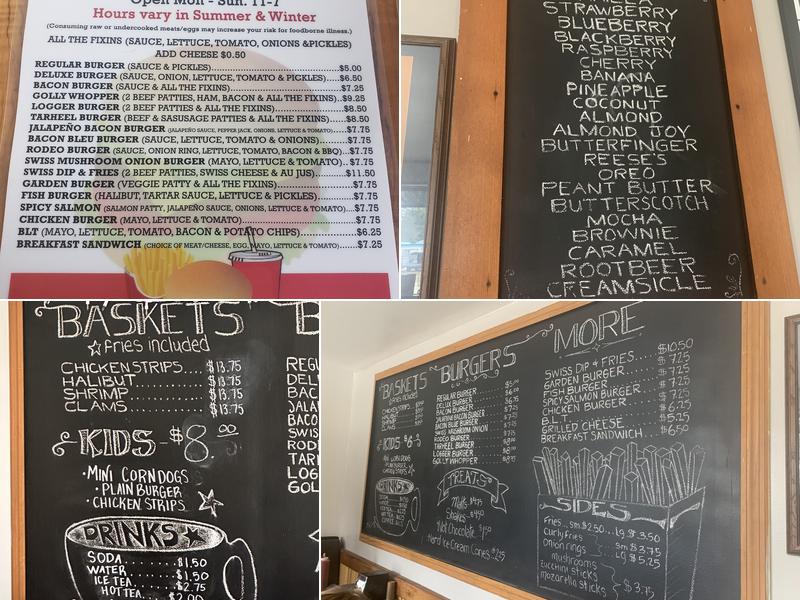 Open Mon - Sun. 11-7
Hours vary in Summer & Winter
(Consuming raw or undercooked meats/eggs may increase your risk for foodborne illness.)
ALL THE FIXINS (SAUCE, LETTUCE, TOMATO, ONIONS &PICKLES)
ADD CHEESE $0.50
REGULAR BURGER (SAUCE & PICKLES)......$5.00
DELUXE BURGER (SAUCE, ONION, LETTUCE, TOMATO & PICKLES)....$6.50
BACON BURGER (SAUCE & ALL THE FIXINS)......$7.25
GOLLY WHOPPER (2 BEEF PATTIES, HAM, BACON & ALL THE FIXINS)..$9.25
LOGGER BURGER (2 BEEF PATTIES & ALL THE FIXINS)......$8.50
TARHEEL BURGER (BEEF & SASUSAGE PATTIES & ALL THE FIXINS)....$8.50
JALAPEÑO BACON BURGER (JALAPEÑO SAUCE, PEPPER JACK, ONIONS, LETTUCE & TOMATO)....$7.75
BACON BLEU BURGER (SAUCE, LETTUCE, TOMATO & ONIONS)....$7.75
RODEO BURGER (SAUCE, ONION RING, LETTUCE, TOMATO, BACON & BBQ)...$7.75
SWISS MUSHROOM ONION BURGER (MAYO, LETTUCE & TOMATO)..$7.75
SWISS DIP & FRIES (2 BEEF PATTIES, SWISS CHEESE & AU JUS)....$11.50
GARDEN BURGER (VEGGIE PATTY & ALL THE FIXINS)......$7.75
FISH BURGER (HALIBUT, TARTAR SAUCE, LETTUCE & PICKLES)......$7.75
SPICY SALMON (SALMON PATTY, JALAPEÑO SAUCE, ONIONS, LETTUCE & TOMATO)....$7.75
CHICKEN BURGER (MAYO, LETTUCE & TOMATO)......$7.75
BLT (MAYO, LETTUCE, TOMATO, BACON & POTATO CHIPS)......$6.25
BREAKFAST SANDWICH (CHOICE OF MEAT/CHEESE, EGG, MAYO, LETTUCE & TOMATO)....$7.25
STRAWBERRY
BLUEBERRY
BLACKBERRY
RASPBERRY
CHERRY
BANANA
PINEAPPLE
COCONUT
ALMOND
ALMOND JOY
BUTTERFINGER
REESE'S
OREO
PEANT BUTTER
BUTTERSCOTCH
MOCHA
BROWNIE
CARAMEL
ROOTBEER
CREAMSICLE
BASKETS
fries included
CHICKEN STRIPS....$13.75
HALIBUT......$13.75
SHRIMP......$13.75
CLAMS......$13.75
KIDS - $8.00
• MINI CORNDOGS
• PLAIN BURGER
• CHICKEN STRIPS
DRINKS
SODA......$1.50
WATER......$1.50
ICE TEA......$2.75
HOT TEA
BASKETS
fries included
CHICKEN STRIPS
HALIBUT
SHRIMP
CLAMS
KIDS
MINI CORN DOGS
PLAIN BURGER
CHICKEN STRIPS
DRINKS
BURGERS
REGULAR BURGER
DELUX BURGER
BACON BURGER
JALAPENO BACON BURGER
BACON BLUE BURGER
SWISS MUSHROOM ONION
RODEO BURGER
TARHEEL BURGER
LOGGER BURGER
GOLLY WHOPPER
TREATS
Malts
Shakes
Hot Chocolate
Hard Ice Cream Cones
MORE
SWISS DIP & FRIES....$10.50
GARDEN BURGER....$7.25
FISH BURGER......$7.25
SPICY SALMON BURGER..$7.25
CHICKEN BURGER....$7.25
B.L.T.......$6.25
GRILLED CHEESE
BREAKFAST SANDWICH....$6.50
SIDES
Fries... sm $2.50... Lg $3.50
Curly Fries
Onion rings... sm $3.75 Lg $5.25
mushrooms
zucchini sticks
mozarella sticks
$3.75